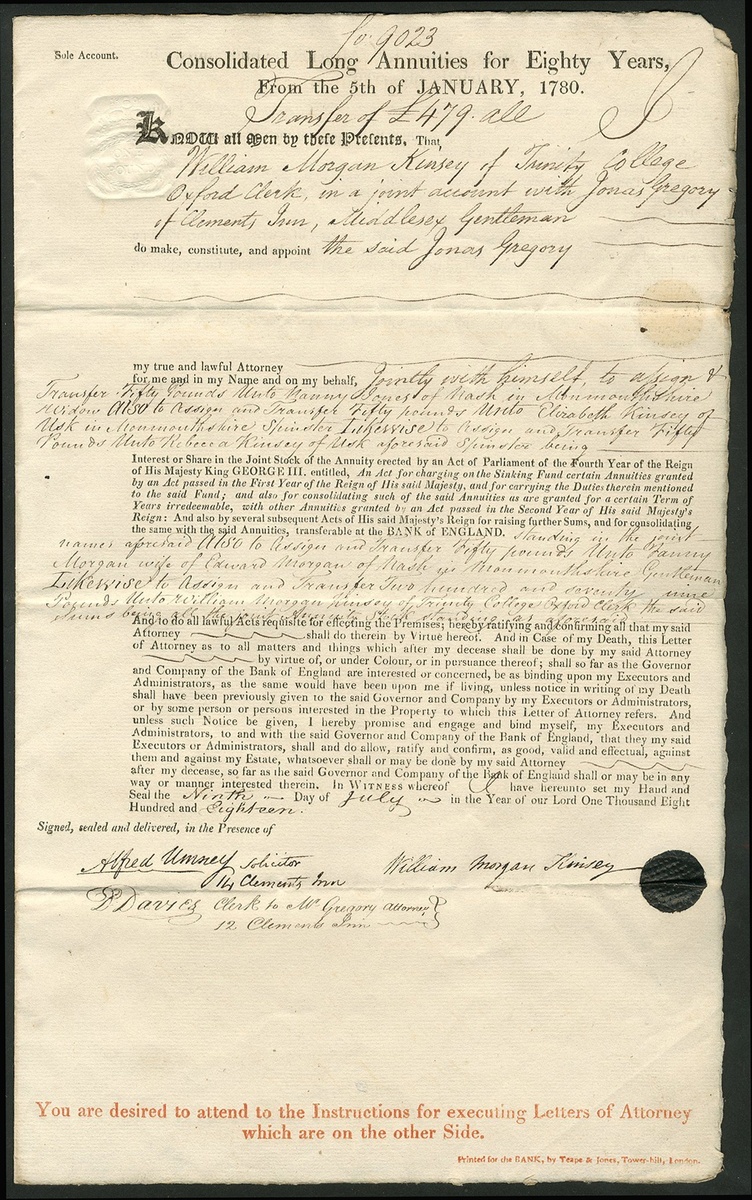 fo: 9023
Sole Account.
Consolidated Long Annuities for Eighty Years,
From the 5th of JANUARY, 1780.
Transfer of £479. all
KNOW all Men by these Presents, That
William Morgan Kinsey of Trinity College
Oxford Clerk, in a joint account with Jonas Gregory
of Clements Inn, Middlesex Gentleman
do make, constitute, and appoint the said Jonas Gregory
my true and lawful Attorney
for me and in my Name and on my behalf, jointly with himself, to assign &
Transfer Fifty Pounds Unto Nanny Jones of Nash in Monmouthshire
Widow Also to Assign and Transfer Fifty pounds Unto Elizabeth Kinsey of
Usk in Monmouthshire Spinster Likewise to Assign and Transfer Fifty
Pounds Unto Rebecca Kinsey of Usk aforesaid Spinster being
Interest or Share in the Joint Stock of the Annuity erected by an Act of Parliament of the Fourth Year of the Reign
of His Majesty King GEORGE III. entitled, An Act for charging on the Sinking Fund certain Annuities granted
by an Act passed in the First Year of the Reign of His said Majesty, and for carrying the Duties therein mentioned
to the said Fund; and also for consolidating such of the said Annuities as are granted for a certain Term of
Years irredeemable, with other Annuities granted by an Act passed in the Second Year of His said Majesty's
Reign: And also by several subsequent Acts of His said Majesty's Reign for raising further Sums, and for consolidating
the same with the said Annuities, transferable at the BANK of ENGLAND. standing in the joint
names aforesaid Also to Assign and Transfer Fifty pounds Unto Fanny
Morgan wife of Edward Morgan of Nash in Monmouthshire Gentleman
Likewise to Assign and Transfer Two hundred and seventy nine
Pounds Unto William Morgan Kinsey of Trinity College Oxford Clerk the said
sums being all
And to do all lawful Acts requisite for effecting the Premises; hereby ratifying and confirming all that my said
Attorney shall do therein by Virtue hereof. And in Case of my Death, this Letter
of Attorney as to all matters and things which after my decease shall be done by my said Attorney
by virtue of, or under Colour, or in persuance thereof; shall so far as the Governor
and Company of the Bank of England are interested or concerned, be as binding upon my Executors and
Administrators, as the same would have been upon me if living, unless notice in writing of my Death
shall have been previously given to the said Governor and Company by my Executors or Administrators,
or by some person or persons interested in the Property to which this Letter of Attorney refers. And
unless such Notice be given, I hereby promise and engage and bind myself, my Executors and
Administrators, to and with the said Governor and Company of the Bank of England, that they my said
Executors or Administrators, shall and do allow, ratify and confirm, as good, valid and effectual, against
them and against my Estate, whatsoever shall or may be done by my said Attorney
after my decease, so far as the said Governor and Company of the Bank of England shall or may be in any
way or manner interested therein. In WITNESS whereof I have hereunto set my Hand and
Seal the Ninth Day of July in the Year of our Lord One Thousand Eight
Hundred and Eighteen.
Signed, sealed and delivered, in the Presence of
Alfred Umney Solicitor William Morgan Kinsey
14 Clements Inn
D Davies Clerk to Mr Gregory Attorney
12 Clements Inn
You are desired to attend to the Instructions for executing Letters of Attorney
which are on the other Side.
Printed for the BANK, by Teape & Jones, Tower-hill, London.